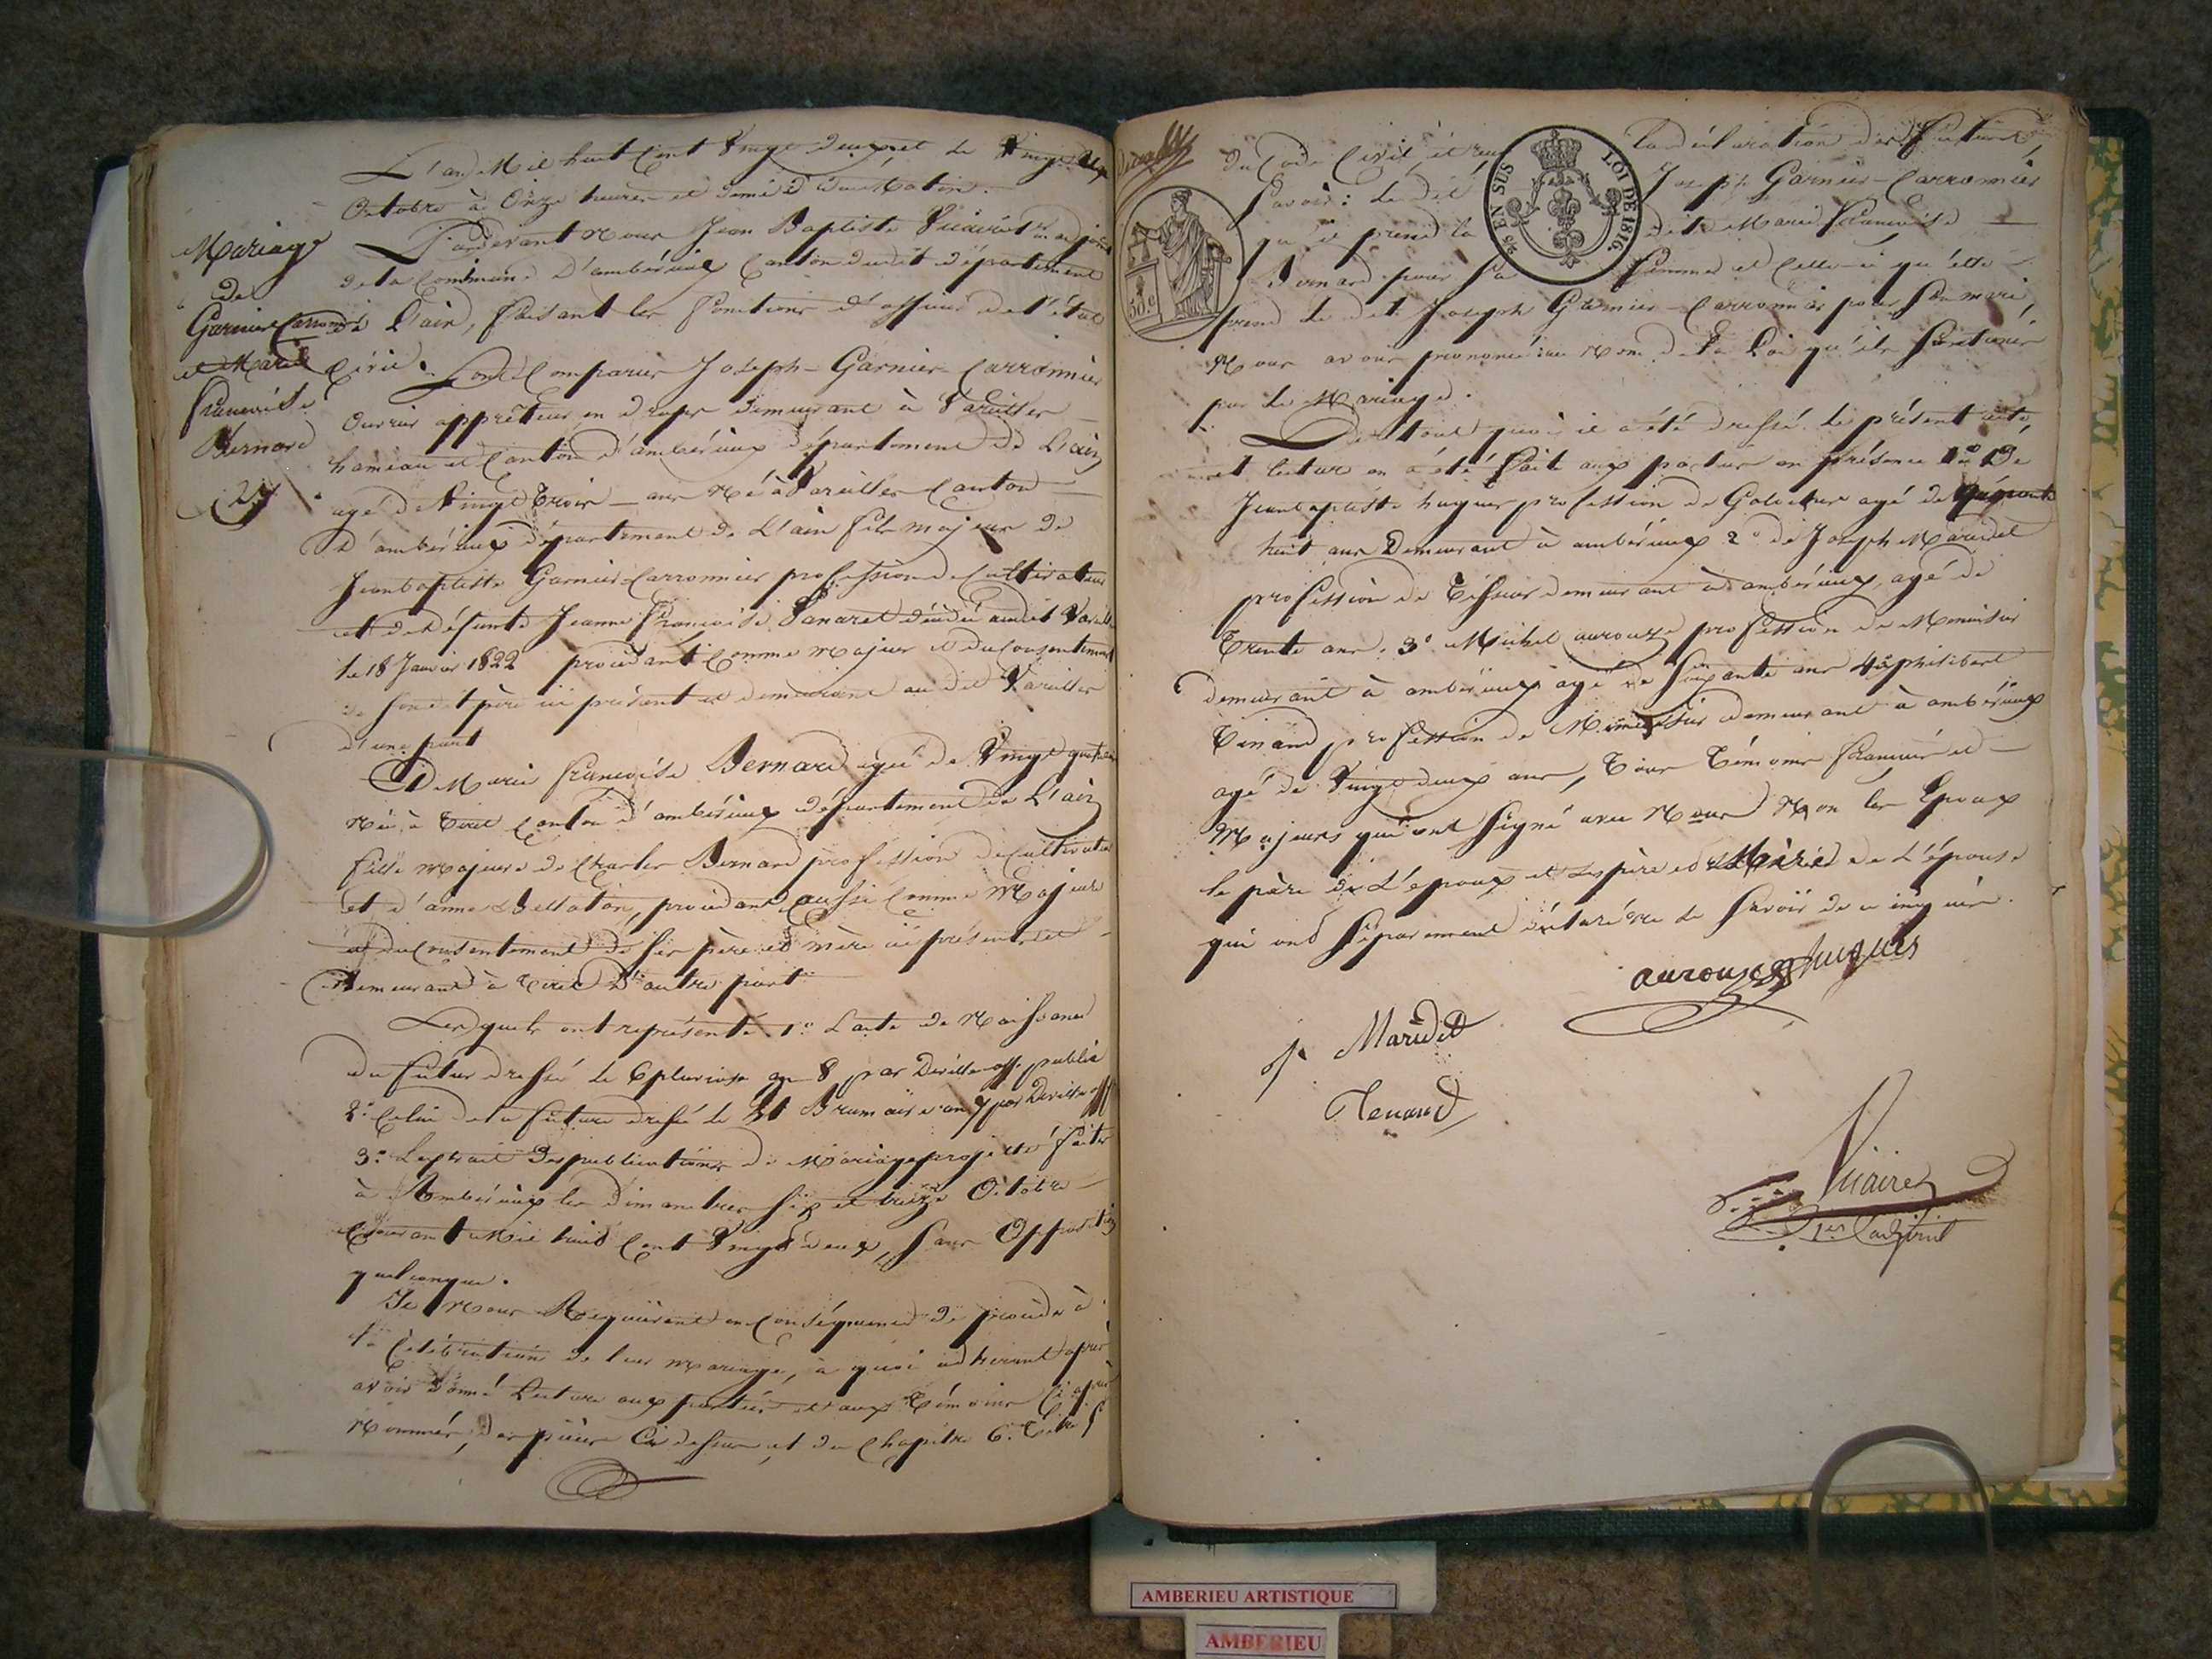 Mariage
de
Garnier Carronnier
et Marie
francoise
Bernard
27
L'an Mil huit Cent Vingt deux, et le Vingt deux
Octobre à Onze heures et demie du Matin.
Pardevant Nous Jean Baptiste Vicaire 1er adjoint
de la Commune d'ambérieux Canton dudit département
de L'ain, faisant les fonctions d'officier de l'état
Civil. Sont Comparus Joseph-Garnier-Carronnier
Ouvrier apprêteur en draps demeurant à Vareilles
hameau et Canton d'ambérieux département de L'ain
agé de Vingt Trois ans Né à Vareilles Canton
d'ambérieux département de L'ain fils majeur de
Jeanbaptiste Garnier Carronnier profession de Cultivateur
et de défunte Jeanne françoise Panaret décédée audit Vareilles
le 18 Janvier 1822 procédant Comme majeur et du Consentement
de son dit père ici présent et demeurant au dit Vareilles
d'une part
Et Marie francoise Bernard agée de Vingt quatre ans
Née à Tiret Canton d'ambérieux département de L'ain
fille majeure de Charles Bernard profession de Cultivateur
et d'anne Bellaton, procédant aussi Comme Majeure
et du Consentement de ses père et mère ici présents et
demeurant à Tiret D'autre part
Lesquels ont représenté 1° L'acte de Naissance
du futur dressé le 6 pluviose an 8 par Deville off. public
2° Celui de la future dressé le 21 Brumaire an 7 par Deville off
3° L'extrait des publications de Mariage projetté faites
à Ambérieux les dimanches six et treize Octobre
Courant Mil huit Cent Vingt deux, sans Opposition
quelconque.
Et Nous Requièrent en Conséquence de procéder à
la Célébration de leur mariage, à quoi adhérant après
avoir donné Lecture aux parties et aux Témoins Ci après
Nommés, des pièces Ci dessus, et du Chapitre 6. Titre 5
du Code Civil, et reçu la déclaration des futurs,
savoir: Ledit Joseph Garnier-Carronnier
qu'il prend la dite Marie francoise
Bernard pour sa femme et Celle-ci qu'elle
prend le dit Joseph Garnier-Carronnier pour son mari,
Nous avons prononcé au Nom de la Loi qu'ils sont unis
par le Mariage.
De tout quoi il a été dressé le présent acte,
et lecture en a été faite aux parties en présence 1° De
Jeanbaptiste hugues profession de Galocheur agé de
huit ans Demeurant à ambérieux 2° de Joseph Maridet
profession de Tisseur demeurant à ambérieux, agé de
Trente ans. 3° Michel aurouze profession de Menuisier
demeurant à ambérieux agé de soixante ans 4° philibert
Tenand profession de Menuisier demeurant à ambérieux
agé de Vingt deux ans, Tous Témoins francais et
Majeurs qui ont signé avec Nous Non les Epoux
le père de L'epoux et les père et Mère de L'épouse
qui ont séparement déclaré ne le savoir de ce enquis.
aurouze hugues
J. Maridet
Tenand
Vicaire
1er adjoint
50 c
25 EN SUS
LOI DE 1816.
AMBERIEU ARTISTIQUE
AMBERIEU